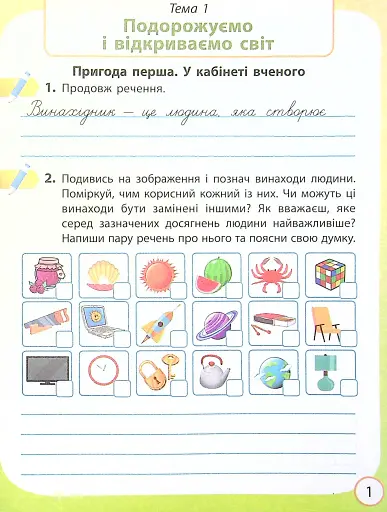 Тема 1
Подорожуємо
і відкриваємо світ
Пригода перша. У кабінеті вченого
1. Продовж речення.
Винахідник – це людина, яка створює
2. Подивись на зображення і познач винаходи людини.
Поміркуй, чим корисний кожний із них. Чи можуть ці
винаходи бути замінені іншими? Як вважаєш, яке
серед зазначених досягнень людини найважливіше?
Напиши пару речень про нього та поясни свою думку.
1